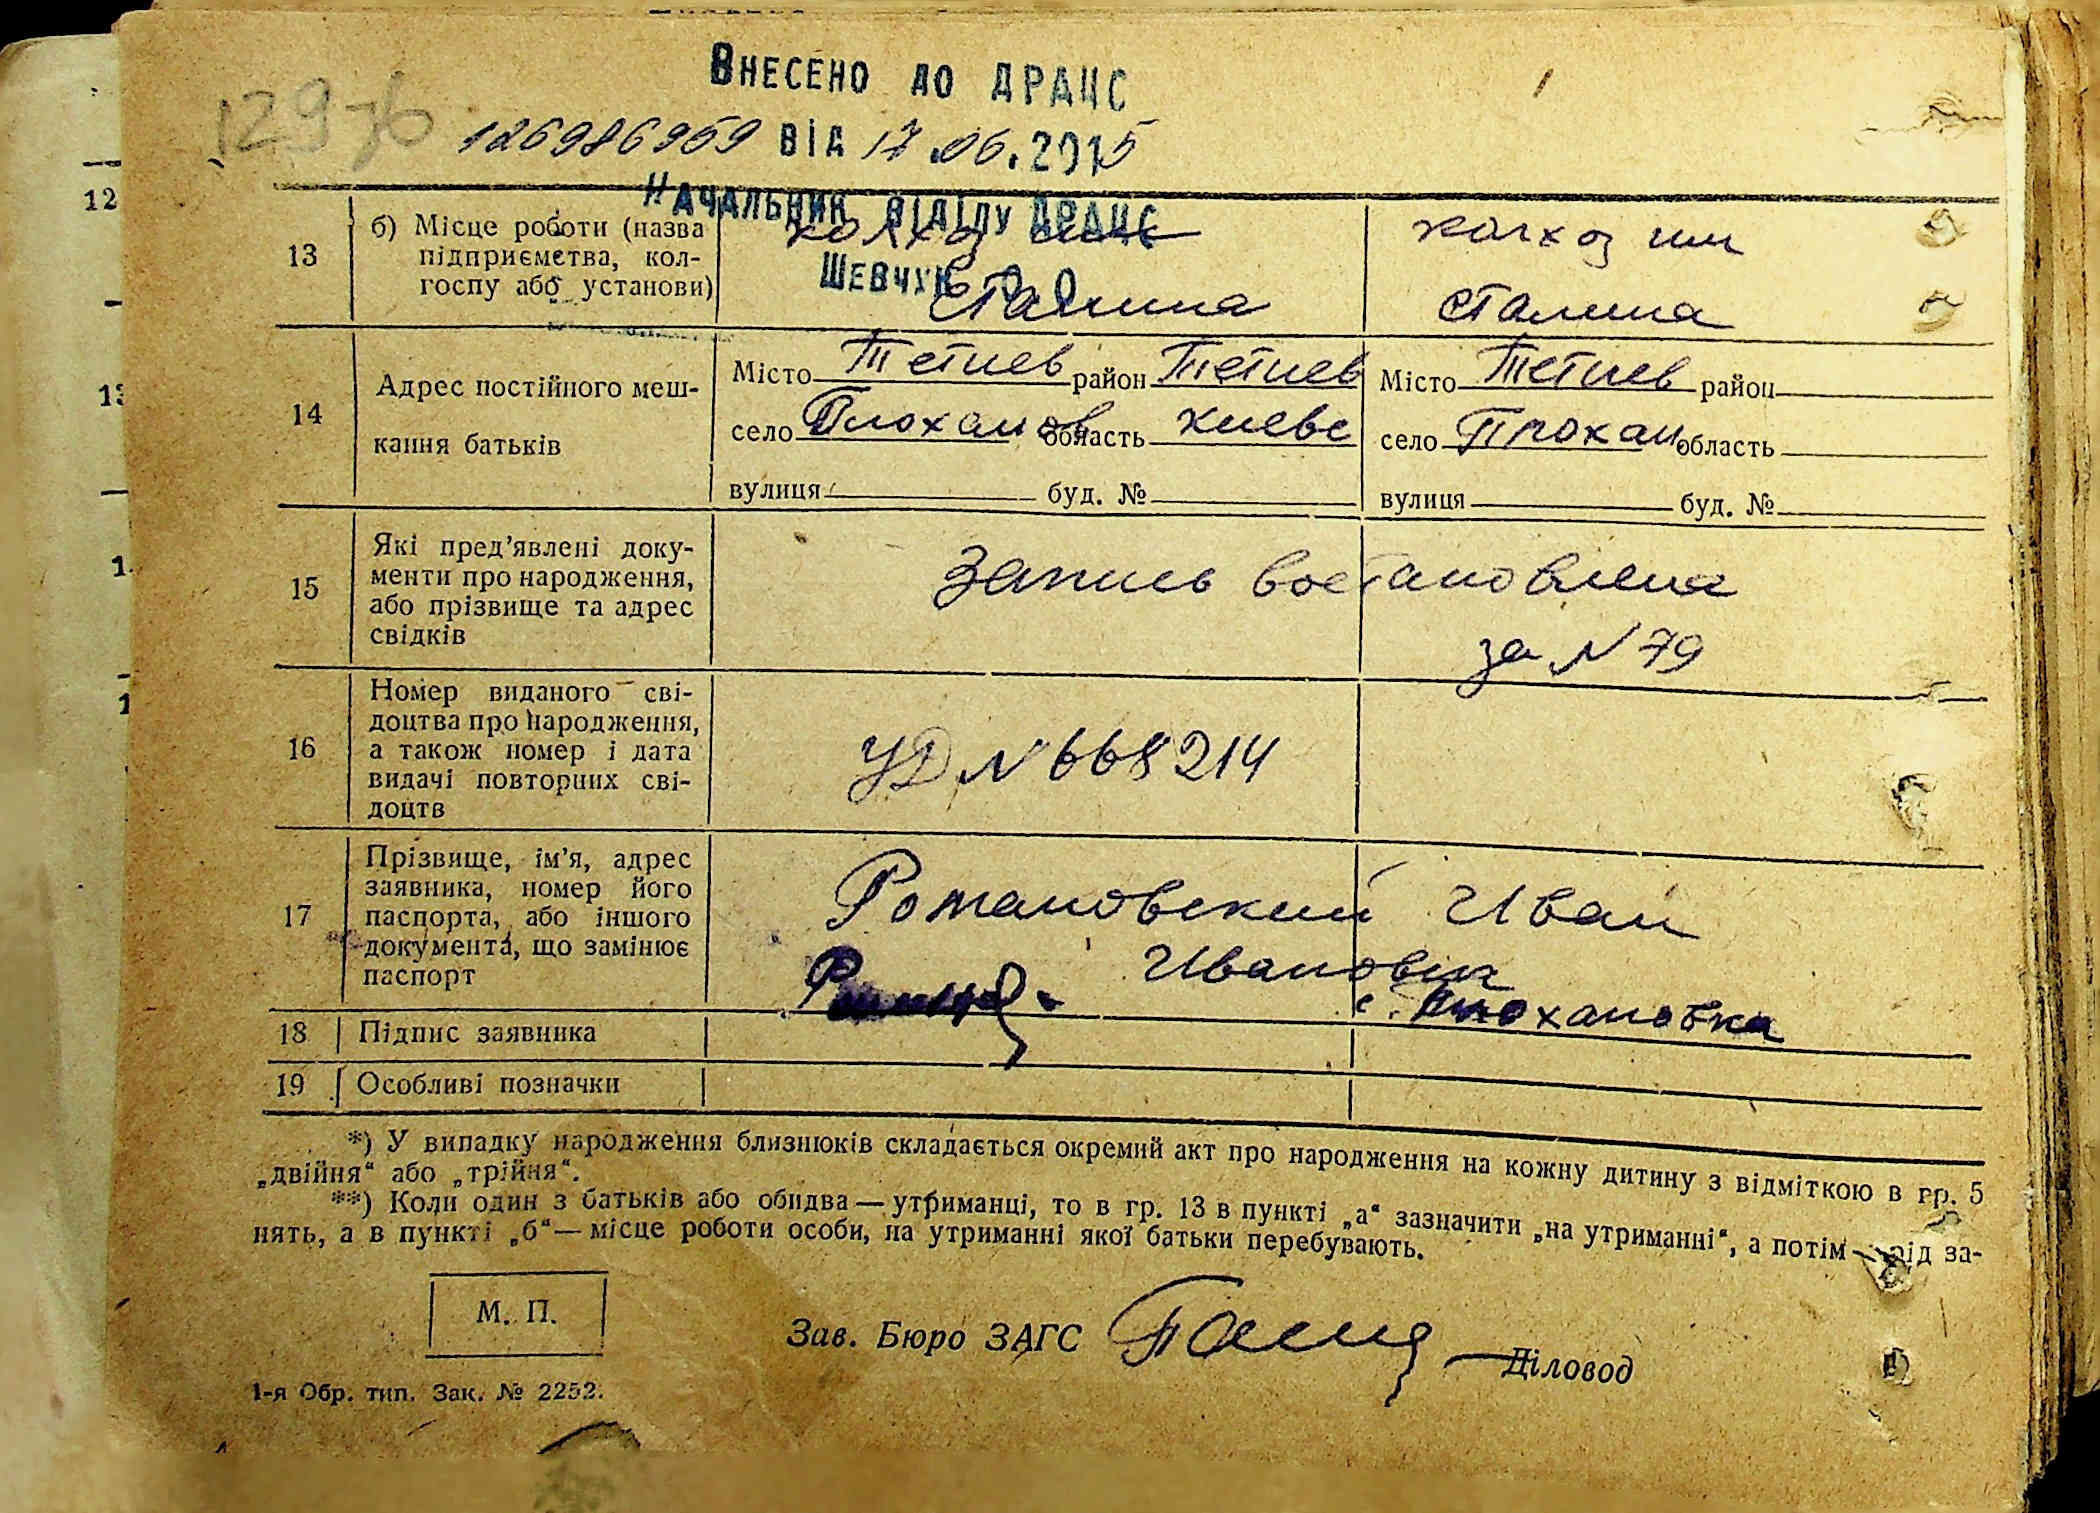 12976
Внесено до ДРАЦС
126986969 від 17.06.2015
Начальник відділу ДРАЦС
Шевчук О О
13 б) Місце роботи (назва підприємства, колгоспу або установи)
колхоз им Сталина
колхоз им Сталина
14 Адрес постійного мешкання батьків
Місто Тетиев район Тетиев
село Плоханов область Киевс
вулиця буд. №
Місто Тетиев район
село Плохан область
вулиця буд. №
15 Які пред’явлені документи про народження, або прізвище та адрес свідків
Запись востановлена
за N 79
16 Номер виданого свідоцтва про народження, а також номер і дата видачі повторних свідоцтв
УД N 668214
17 Прізвище, ім’я, адрес заявника, номер його паспорта, або іншого документа, що замінює паспорт
Романовский Иван
Иванович
с. Плохановка
18 Підпис заявника
19 Особливі позначки
*) У випадку народження близнюків складається окремий акт про народження на кожну дитину з відміткою в гр. 5
„двійня“ або „трійня“.
**) Коли один з батьків або обидва — утриманці, то в гр. 13 в пункті „а“ зазначити „на утриманні“, а потім — рід за-
нять, а в пункті „б“ — місце роботи особи, на утриманні якої батьки перебувають.
М. П.
Зав. Бюро ЗАГС
Діловод
1-я Обр. тип. Зак. № 2252.